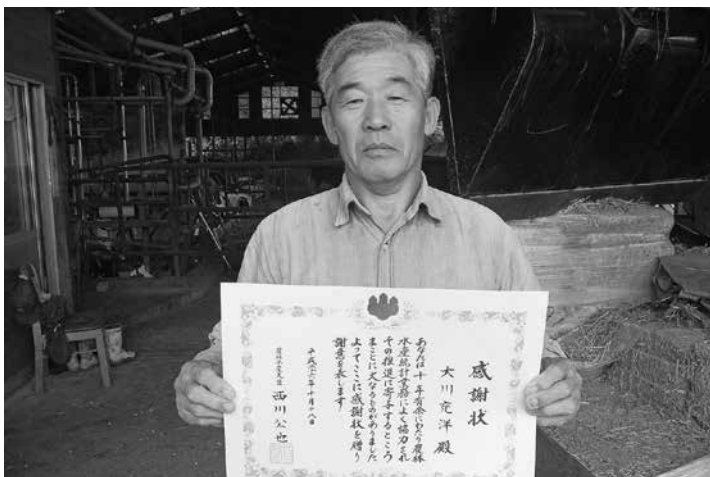 感謝状
大川克洋殿
あなたは十年有余にわたり農林
水産統計業務によく協力され
その推進に寄与するところ
まことに大なるものがありました
よってここに感謝状を贈り
謝意を表します
平成二十六年十月十八日
農林水産大臣 西川公也